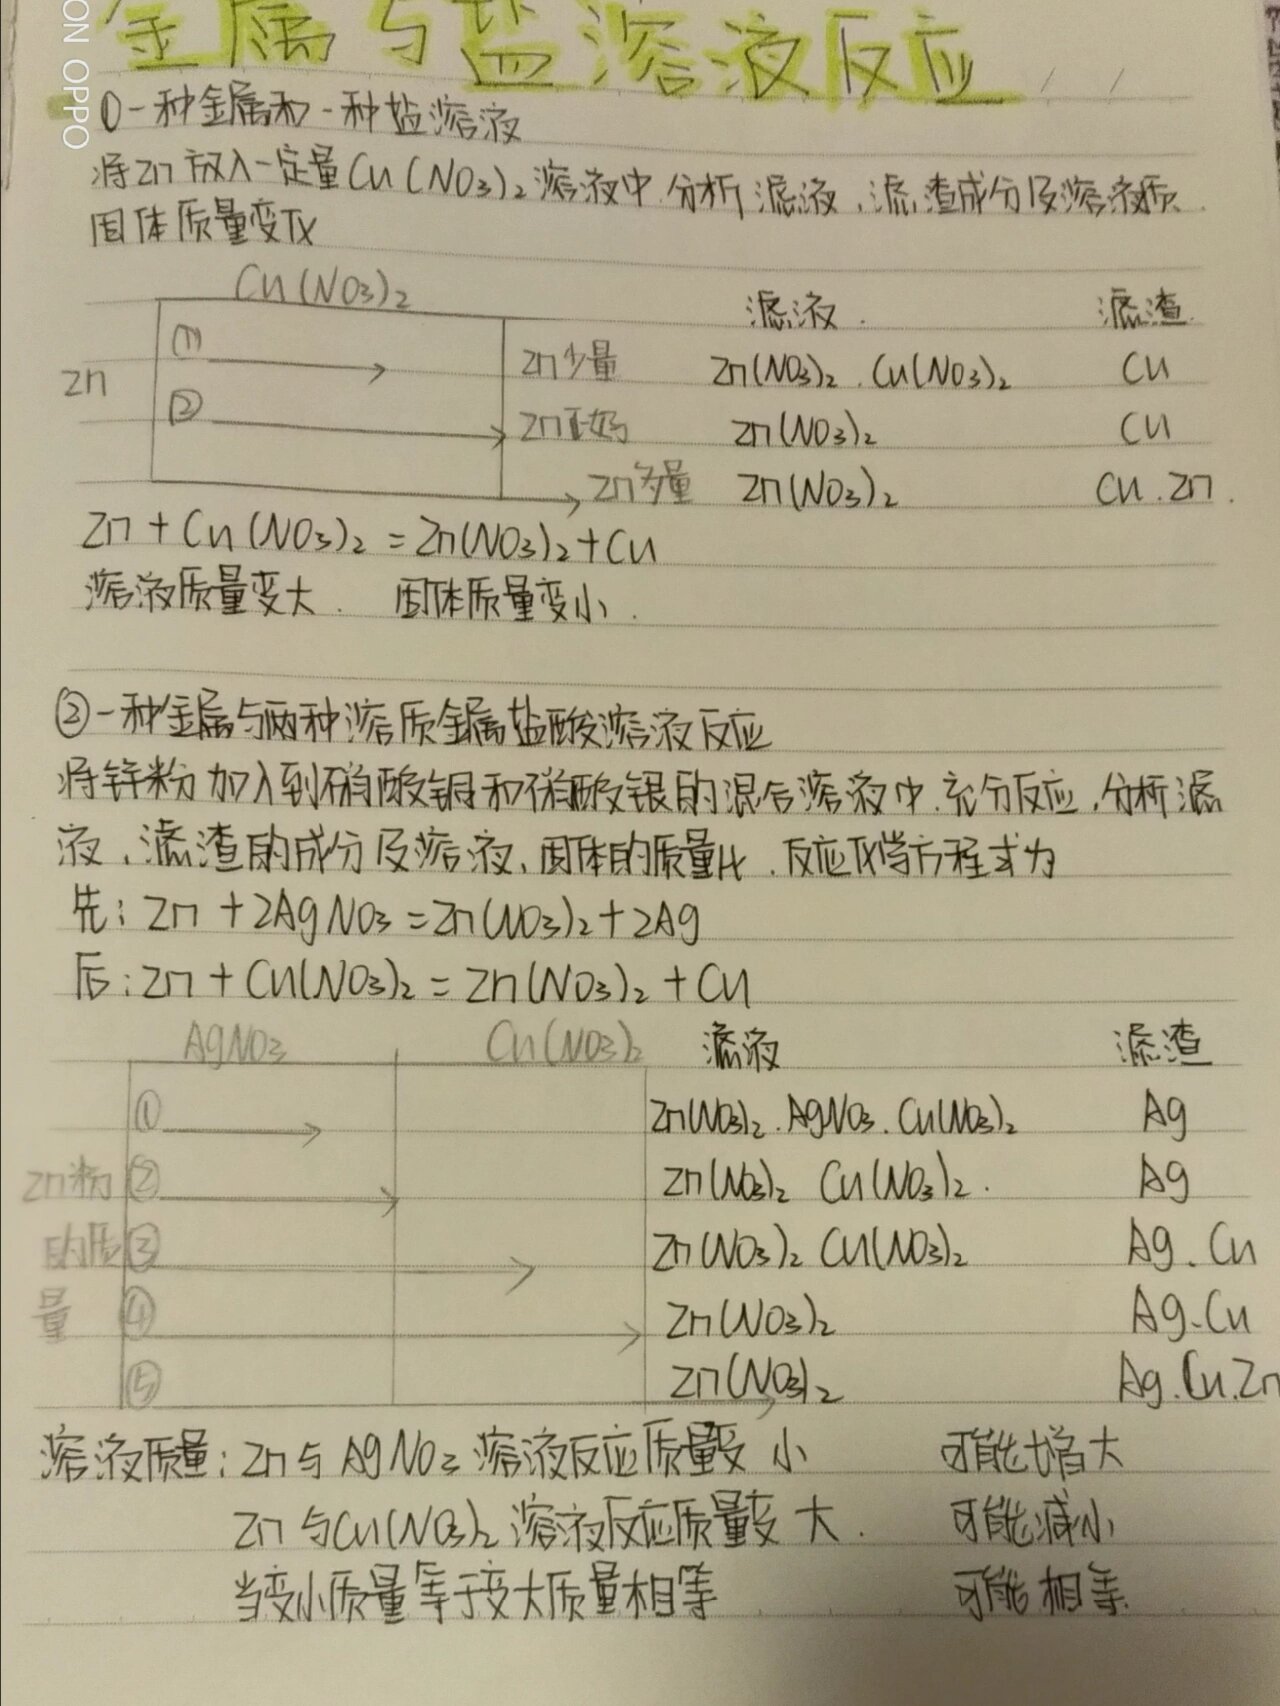 ON OPPO
金属与盐溶液反应
①一种金属和一种盐溶液
将Zn放入一定量Cu(NO₃)₂溶液中.分析滤液、滤渣成分及溶液质
固体质量变化
Cu(NO₃)₂ 滤液. 滤渣
Zn ① Zn少量 Zn(NO₃)₂.Cu(NO₃)₂ Cu
② Zn正好 Zn(NO₃)₂ Cu
Zn多量 Zn(NO₃)₂ Cu.Zn.
Zn+Cu(NO₃)₂=Zn(NO₃)₂+Cu
溶液质量变大. 固体质量变小.
②一种金属与两种溶质金属盐酸溶液反应
将锌粉加入到硝酸铜和硝酸银的混合溶液中.充分反应.分析滤
液、滤渣的成分及溶液、固体的质量比.反应化学方程式为
先:Zn+2AgNO₃=Zn(NO₃)₂+2Ag
后:Zn+Cu(NO₃)₂=Zn(NO₃)₂+Cu
AgNO₃ Cu(NO₃)₂ 滤液 滤渣
① Zn(NO₃)₂.AgNO₃.Cu(NO₃)₂ Ag
Zn粉 ② Zn(NO₃)₂ Cu(NO₃)₂. Ag
的质 ③ Zn(NO₃)₂ Cu(NO₃)₂ Ag.Cu
量 ④ Zn(NO₃)₂ Ag.Cu
⑤ Zn(NO₃)₂ Ag.Cu.Zn
溶液质量:Zn与AgNO₃溶液反应质量变小 可能增大
Zn与Cu(NO₃)₂溶液反应质量变大. 可能减小
当变小质量等于变大质量相等 可能相等.